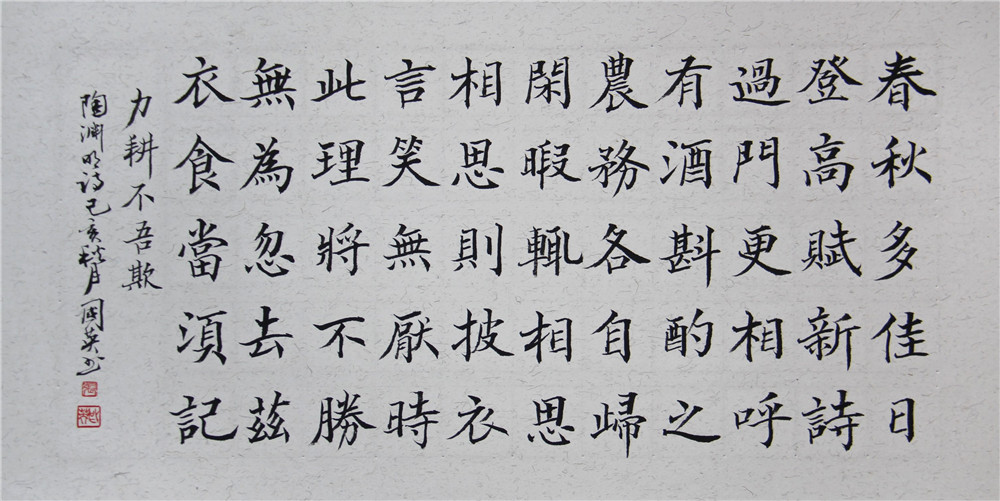 春秋多佳日
登高賦新詩
過門更相呼
有酒斟酌之
農務各自歸
閑暇輒相思
相思則披衣
言笑無厭時
此理將不勝
無為忽去茲
衣食當須記
力耕不吾欺
陶渊明诗己亥桂月国英书